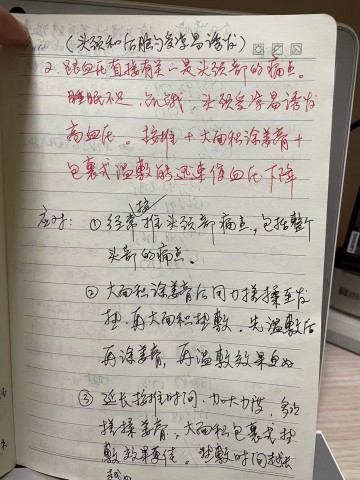 (头颈和后脑勺受寒易诱发)
2. 跟血压直接有关的是头颈部的痛点。
睡眠不足、饥饿、头颈受寒易诱发
高血压。按推+大面积涂姜膏+
包裹式温敷能迅速使血压下降
应对：① 经常按推头颈部痛点，包括整个
头部的痛点。
② 大面积涂姜膏后用力搓揉至发
热，再大面积热敷。先温敷后
再涂姜膏，再温敷效果更好
③ 延长按推时间，加大力度，多次
搓揉姜膏，大面积包裹式热
敷效果更佳。热敷时间越长
越